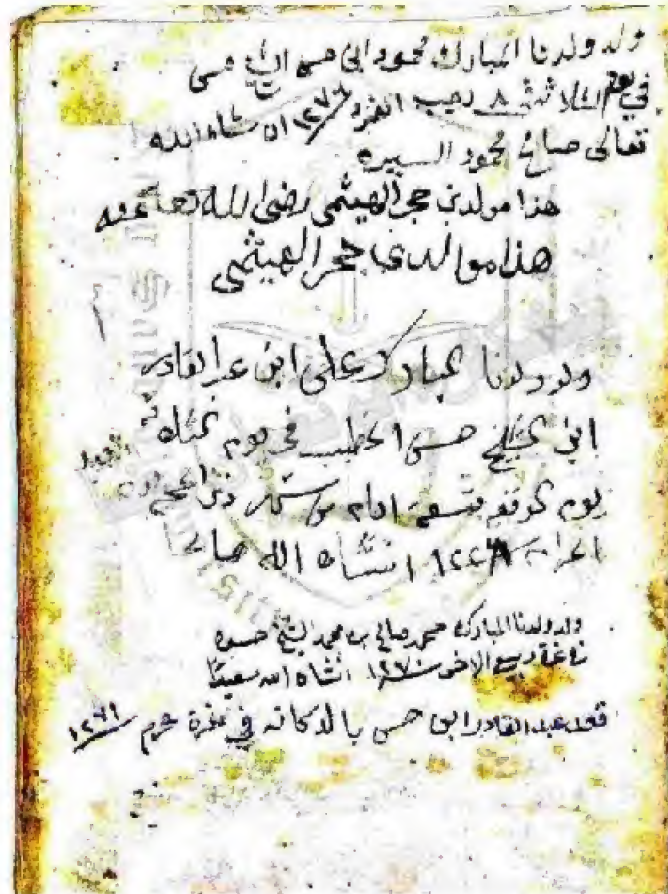 ولد ولدنا المبارك محمود ابن حسن الشيخ حسن
في يوم الثلاث ٨ رجب الفرد ١٢٧٨ ان شاء الله
تعالى صالح محمود السيره
هذا مولد بن حجر الهيثمي رضى الله تعا عنه
هذا مو الد بن حجر الهيثمي
ولد ولدنا المبارك على ابن عبد القادر
ابن الشيخ حسن الخطيب في يوم
يوم الوقفه تسعة ايام من شهر ذو الحجه
الحرام انشاه الله صالح
ولد ولدنا المبارك محمد صالح بن محمد الشيخ حسن
في غاة ربيع الاخر ١٢٧٠ انشاه الله سعيدا
قعد عبد القادر ابن حسن بالدكانه في غرة محرم ١٢٦١